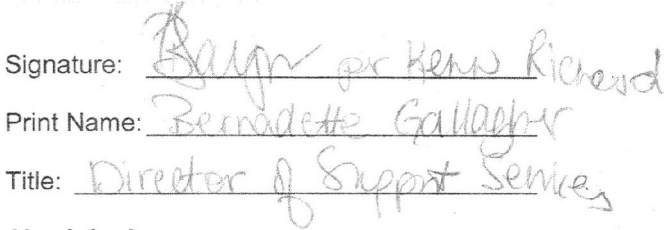 Signature: per Kenn Richard
Print Name: Bernadette Gallagher
Title: Director of Support Services